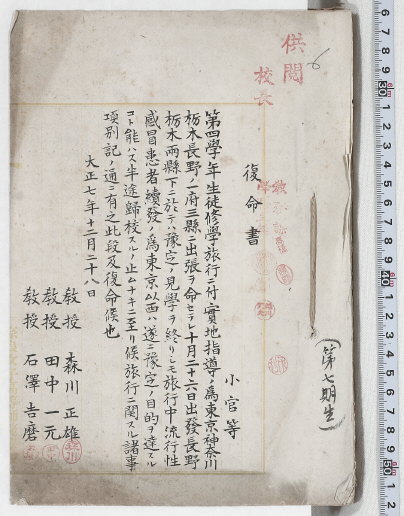 供閲
校長
6
(第七期生)
復命書
小官等
第四學年生徒修學旅行ニ付實地指導ノ爲東京神奈川
栃木長野ノ一府三縣ニ出張ヲ命セラレ十月二十六日出發長野
栃木兩縣下ニ於テハ豫定ノ見學ヲ終リシモ旅行中流行性
感冒患者續發ノ爲東京以西ハ遂ニ豫定ノ目的ヲ達スル
コト能ハス半途歸校スルノ止ムナキニ至リ候旅行ニ關スル諸事
項別記ノ通ニ有之此段及復命候也
大正七年十二月二十八日
教授 森川正雄
教授 田中一元
教授 石澤吉磨